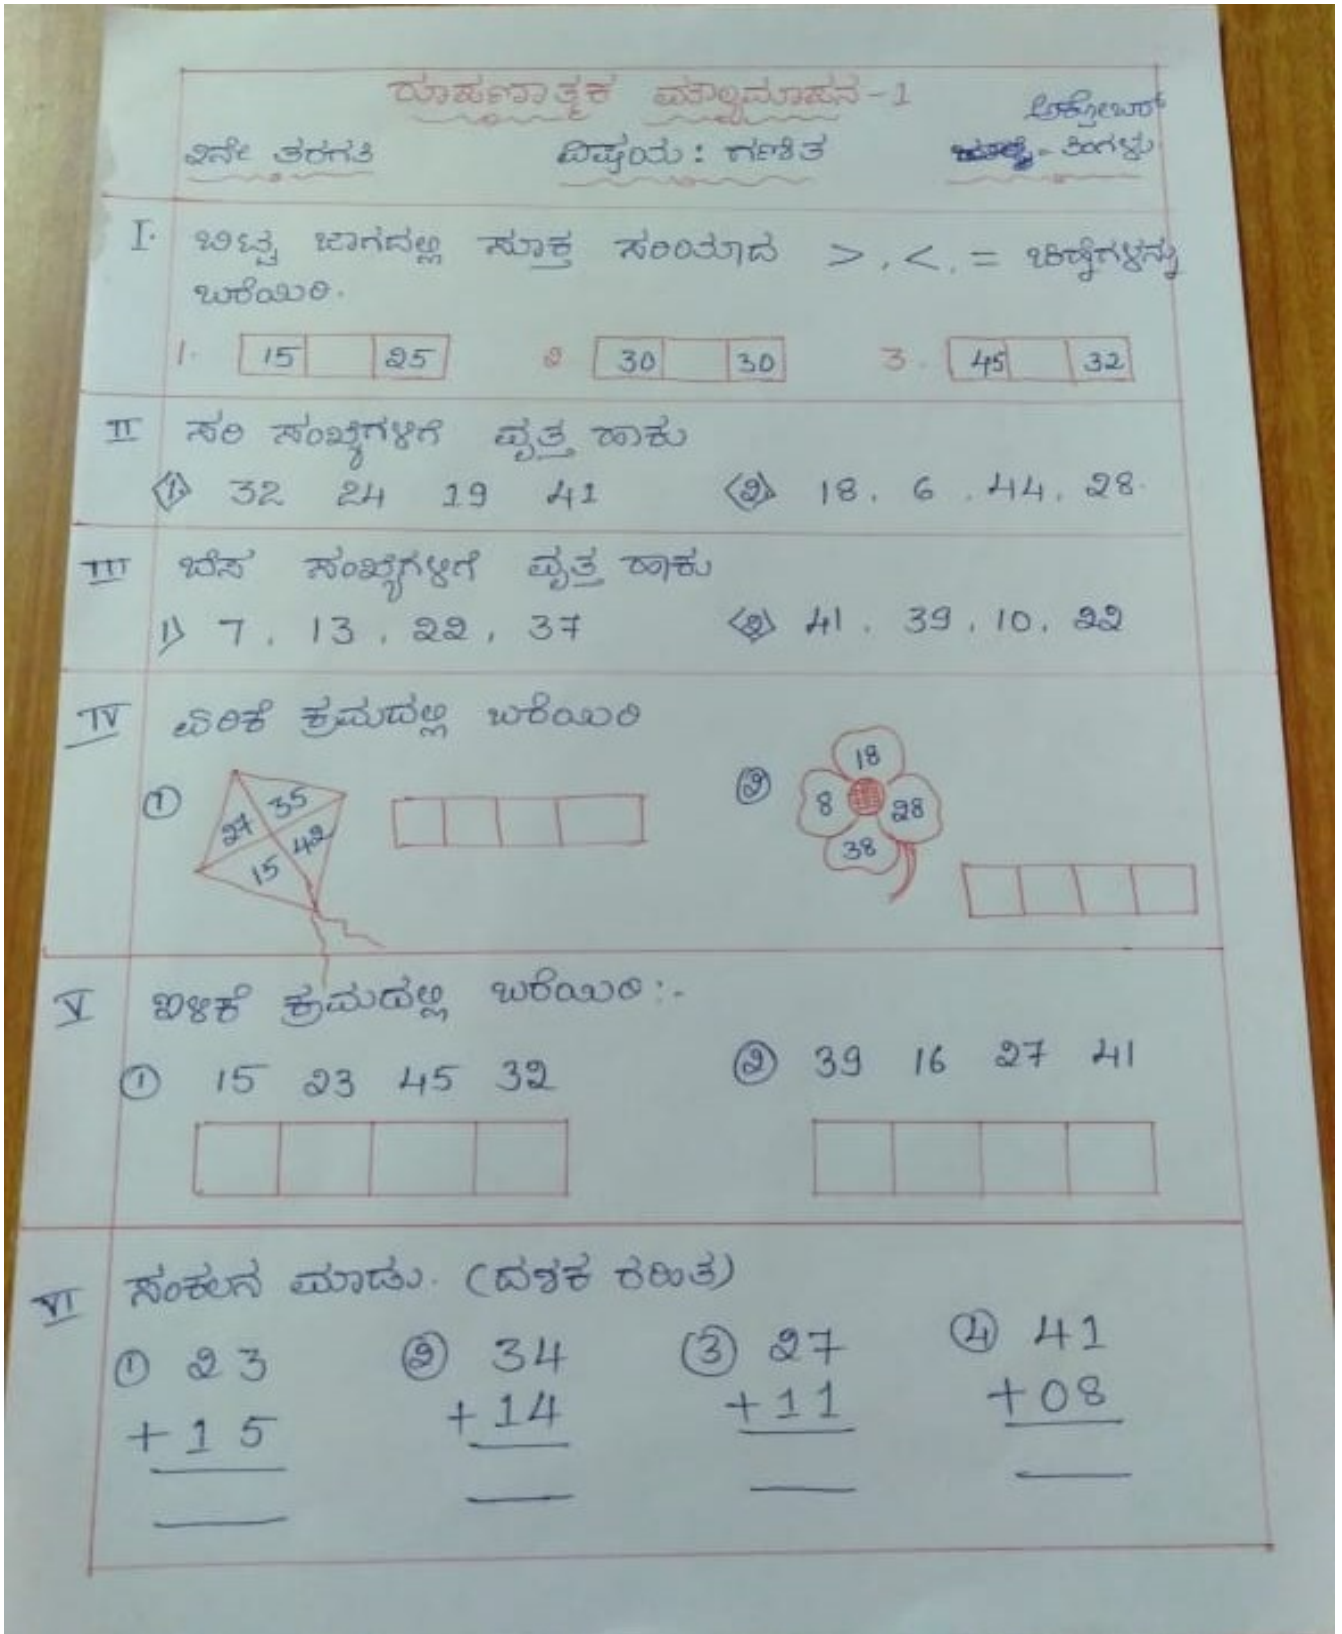 ರೂಪಣಾತ್ಮಕ ಮೌಲ್ಯಮಾಪನ-1
ಅಕ್ಟೋಬರ್
೨ನೇ ತರಗತಿ ವಿಷಯ: ಗಣಿತ ತಿಂಗಳು
I. ಬಿಟ್ಟ ಜಾಗದಲ್ಲಿ ಸೂಕ್ತ ಸರಿಯಾದ >, <, = ಚಿಹ್ನೆಗಳನ್ನು
ಬರೆಯಿರಿ.
1. 15 25 2 30 30 3. 45 32
II ಸರಿ ಸಂಖ್ಯೆಗಳಿಗೆ ವೃತ್ತ ಹಾಕು
1. 32 24 19 41 2 18, 6, 44, 28.
III ಬೆಸ ಸಂಖ್ಯೆಗಳಿಗೆ ವೃತ್ತ ಹಾಕು
1) 7, 13, 22, 37 2 41, 39, 10, 22
IV ಏರಿಕೆ ಕ್ರಮದಲ್ಲಿ ಬರೆಯಿರಿ
① 27 35 42 15
② 18 8 28 38
V ಇಳಿಕೆ ಕ್ರಮದಲ್ಲಿ ಬರೆಯಿರಿ:-
① 15 23 45 32 ② 39 16 27 41
VI ಸಂಕಲನ ಮಾಡು. (ದಶಕ ರಹಿತ)
① 23 ② 34 ③ 27 ④ 41
+15 +14 +11 +08